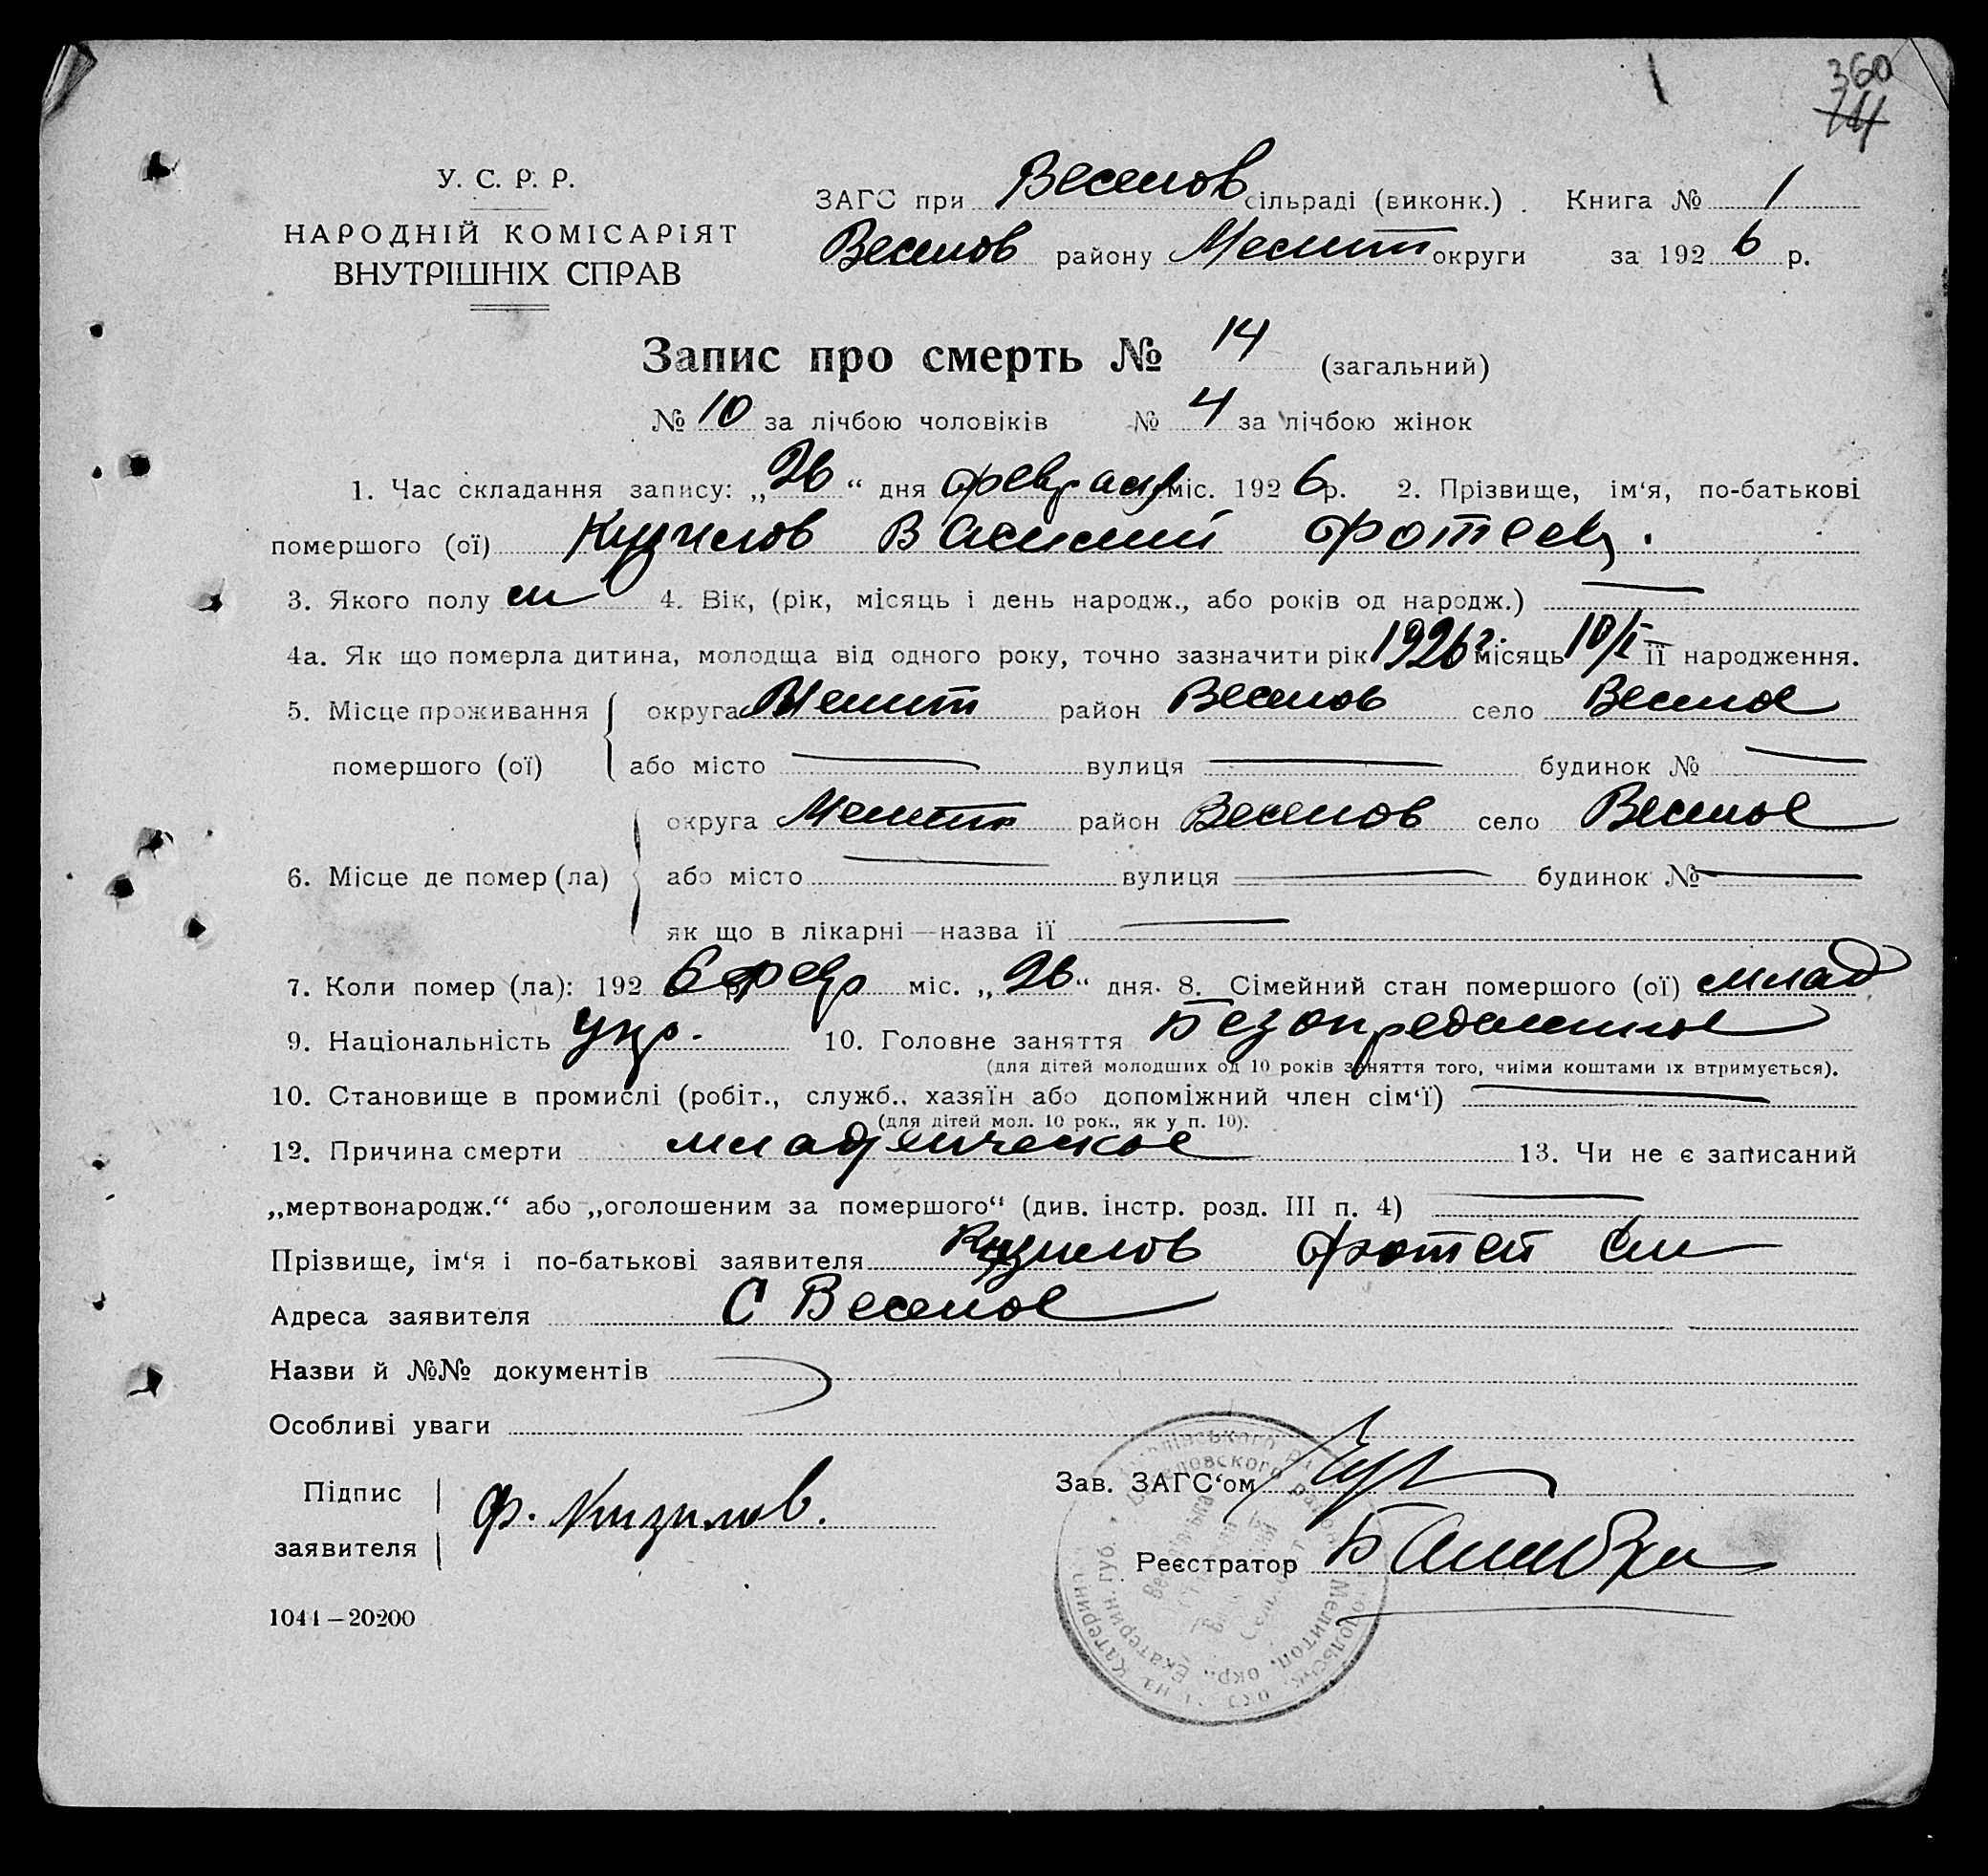 360
14
У. С. Р. Р.
НАРОДНІЙ КОМІСАРІЯТ
ВНУТРІШНІХ СПРАВ
ЗАГС при Веселов сільраді (виконк.). Книга № 1
Веселов району Мелит округи за 1926 р.
Запис про смерть № 14 (загальний)
№ 10 за лічбою чоловіків № 4 за лічбою жінок
1. Час складання запису: „26“ дня февраля міс. 1926 р. 2. Прізвище, ім‘я, по-батькові
помершого (ої) Кизилов Василий Фотеев.
3. Якого полу м 4. Вік, (рік, місяць і день народж., або років од народж.) —
4а. Як що померла дитина, молодща від одного року, точно зазначити рік 1926 г. місяць 10/I її народження.
5. Місце проживання округа Мелит район Веселов село Веселое
помершого (ої) або місто — вулиця — будинок № —
округа Мелит район Веселов село Веселое
6. Місце де помер (ла) або місто — вулиця — будинок № —
як що в лікарні—назва її —
7. Коли помер (ла): 1926 р. февр міс. „26“ дня. 8. Сімейний стан помершого (ої) млад
9. Національність Укр. 10. Головне заняття Безопределенное
(для дітей молодших од 10 років заняття того, чиїми коштами їх втримується).
10. Становище в промислі (робіт., служб., хазяїн або допоміжний член сім‘ї) —
(для дітей мол. 10 рок., як у п. 10).
12. Причина смерти младенческое 13. Чи не є записаний
„мертвонародж.“ або „оголошеним за помершого“ (див. інстр. розд. III п. 4) —
Прізвище, ім‘я і по-батькові заявителя Кизилов Фотей
Адреса заявителя С Веселое
Назви й №№ документів
Особливі уваги
Підпис Зав. ЗАГС‘ом
заявителя Ф. Кизилов. Реєстратор
1041—20200